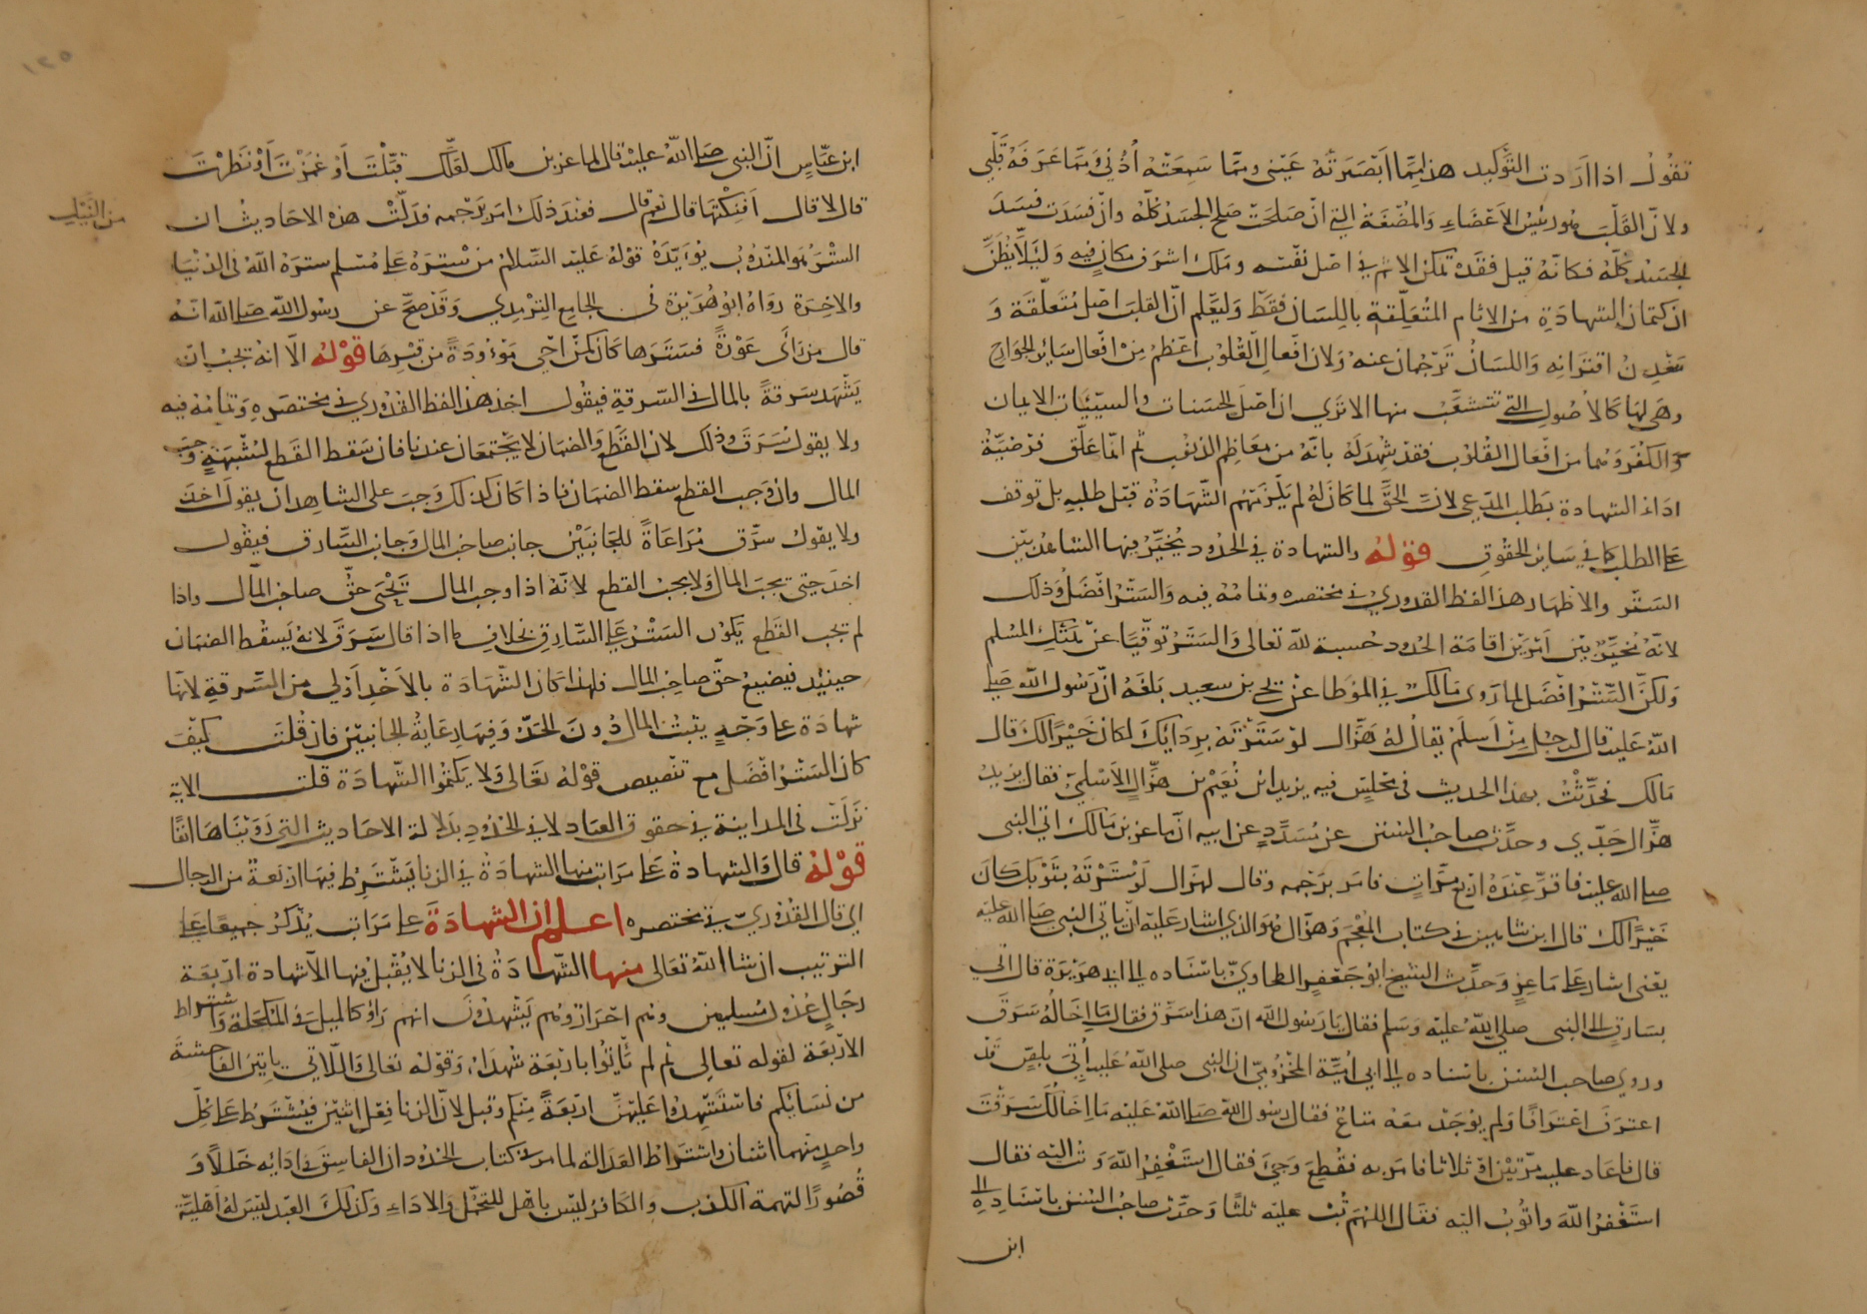 تقول اذا اردت التوكيد هذا مما ابصرته عيني ومما سمعته اذني ومما عرفه قلبي
ولان القلب هو رئيس الاعضاء والمضغة التي ان صلحت صلح الجسد كله وان فسدت فسد
الجسد كله فكانه قيل فقد تمكن الاثم في اصل نفسه وملك اشرف مكان فيه ولئلا يظن
ان كتمان الشهادة من الاثام المتعلقة باللسان فقط وليعلم ان القلب اصل متعلقه و
معدن اقترانه واللسان ترجمان عنه ولان افعال القلوب اعظم من افعال سائر الجوارح
وهي لها كالاصول التي تتشعب منها الا ترى ان اصل الحسنات والسيئات الايمان
والكفر وهما من افعال القلوب فقد شهد له بانه من معاظم الذنوب ثم انما علق فرضية
اداء الشهادة بطلب المدعي لان الحق لما كان له لم يلزمهم الشهادة قبل طلبه بل توقف
على الطلب كما في سائر الحقوق قوله والشهادة في الحدود يخير فيها الشاهد بين
الستر والاظهار هذا لفظ القدوري في مختصره وتمامه فيه والستر افضل وذلك
لانه مخير بين امرين اقامة الحدود حسبة لله تعالى والستر توقيا عن هتك المسلم
ولكن الستر افضل لما روى مالك في الموطا عن يحيى بن سعيد بلغه ان رسول الله صلى
الله عليه قال لرجل من اسلم يقال له هزال لو سترته بردايك لكان خيرا لك قال
مالك فحدثت بهذا الحديث في مجلس فيه يزيد ابن نعيم بن هزال الاسلمي فقال يزيد
هزال جدي وحدث صاحب السنن عن مسدد عن ابيه ان ماعز بن مالك اتى النبي
صلى الله عليه فاقر عنده اربع مرات فامر برجمه وقال لهزال لو سترته بثوبك كان
خيرا لك قال ابن شاهين في كتاب المعجم وهزال هو الذي اشار عليه ان ياتي النبي صلى الله عليه
يعني اشار على ماعز وحدث الشيخ ابو جعفر الطحاوي باسناده الى ابي هريرة قال اتي
بسارق الى النبي صلى الله عليه وسلم فقال يا رسول الله ان هذا سرق فقال ما اخاله سرق
وروى صاحب السنن باسناده الى ابي امية المخزومي ان النبي صلى الله عليه اتي بلص قد
اعترف اعترافا ولم يوجد معه متاع فقال رسول الله صلى الله عليه ما اخالك سرقت
قال فاعاد عليه مرتين او ثلاثا فامر به فقطع وجيء فقال استغفر الله وتب اليه فقال
استغفر الله واتوب اليه فقال اللهم تب عليه ثلثا وحدث صاحب السنن باسناده الى
ابن
١٢٥
ابن عباس ان النبي صلى الله عليه قال لماعز بن مالك لعلك قبلت او غمزت او نظرت
قال لا قال افنكتها قال نعم قال فعند ذلك امر برجمه فدلت هذه الاحاديث ان
من النيل
الستر هو المندوب يؤيده قوله عليه السلام من ستره على مسلم ستره الله في الدنيا
والاخرة رواه ابو هريرة في الجامع الترمذي وقد صح عن رسول الله صلى الله انه
قال من راى عورة فسترها كان كمن احيى موءودة من قبرها قوله الا انه يجب ان
يشهد سرقة بالمال في السرقة فيقول اخذ هذا لفظ القدوري في مختصره وتمامه فيه
ولا يقول سرق وذلك لان القطع والضمان لا يجتمعان عندنا فان سقط القطع لشبهة وجب
المال وان وجب القطع سقط الضمان فاذا كان كذلك وجب على الشاهد ان يقول اخذ
ولا يقول سرق مراعاة للجانبين جانب صاحب المال وجانب السارق فيقول
اخذ حتى يجب المال ولا يجب القطع لانه اذا وجب المال يحيى حق صاحب المال واذا
لم يجب القطع يكون الستر على السارق بخلاف ما اذا قال سرق لانه يسقط الضمان
حينئذ فيضيع حق صاحب المال فلهذا كان الشهادة بالاخذ اولى من السرقة لانها
شهادة على وجه يثبت المال دون الحد وفيها رعاية الجانبين فان قلت كيف
كان الستر افضل مع تنصيص قوله تعالى ولا يكتموا الشهادة قلت الاية
نزلت في المداينة في حقوق العباد لا في الحدود بدلالة الاحاديث التي رويناها انفا
قوله قال والشهادة على مراتب منها الشهادة في الزنا يشترط فيها اربعة من الرجال
الى قال القدوري في مختصره اعلم ان الشهادة على مراتب يذكر جميعها على
الترتيب ان شا الله تعالى منها الشهادة في الزنا لا يقبل فيها الا شهادة اربعة
رجال عدول مسلمين وهم احرار وهم يشهدون انهم راوا كالميل في المكحلة واشتراط
الاربعة لقوله تعالى ثم لم ياتوا باربعة شهداء وقوله تعالى واللاتي ياتين الفاحشة
من نسائكم فاستشهدوا عليهن اربعة منكم وقيل لان الزنا فعل اثنين فيشترط على كل
واحد منهما اثنان واشتراط العدالة لما مر في كتاب الحدود ان الفاسق في ادائه خللا و
قصورا لتهمة الكذب والكافر ليس باهل للتحمل والاداء وكذلك العبد ليس له اهلية